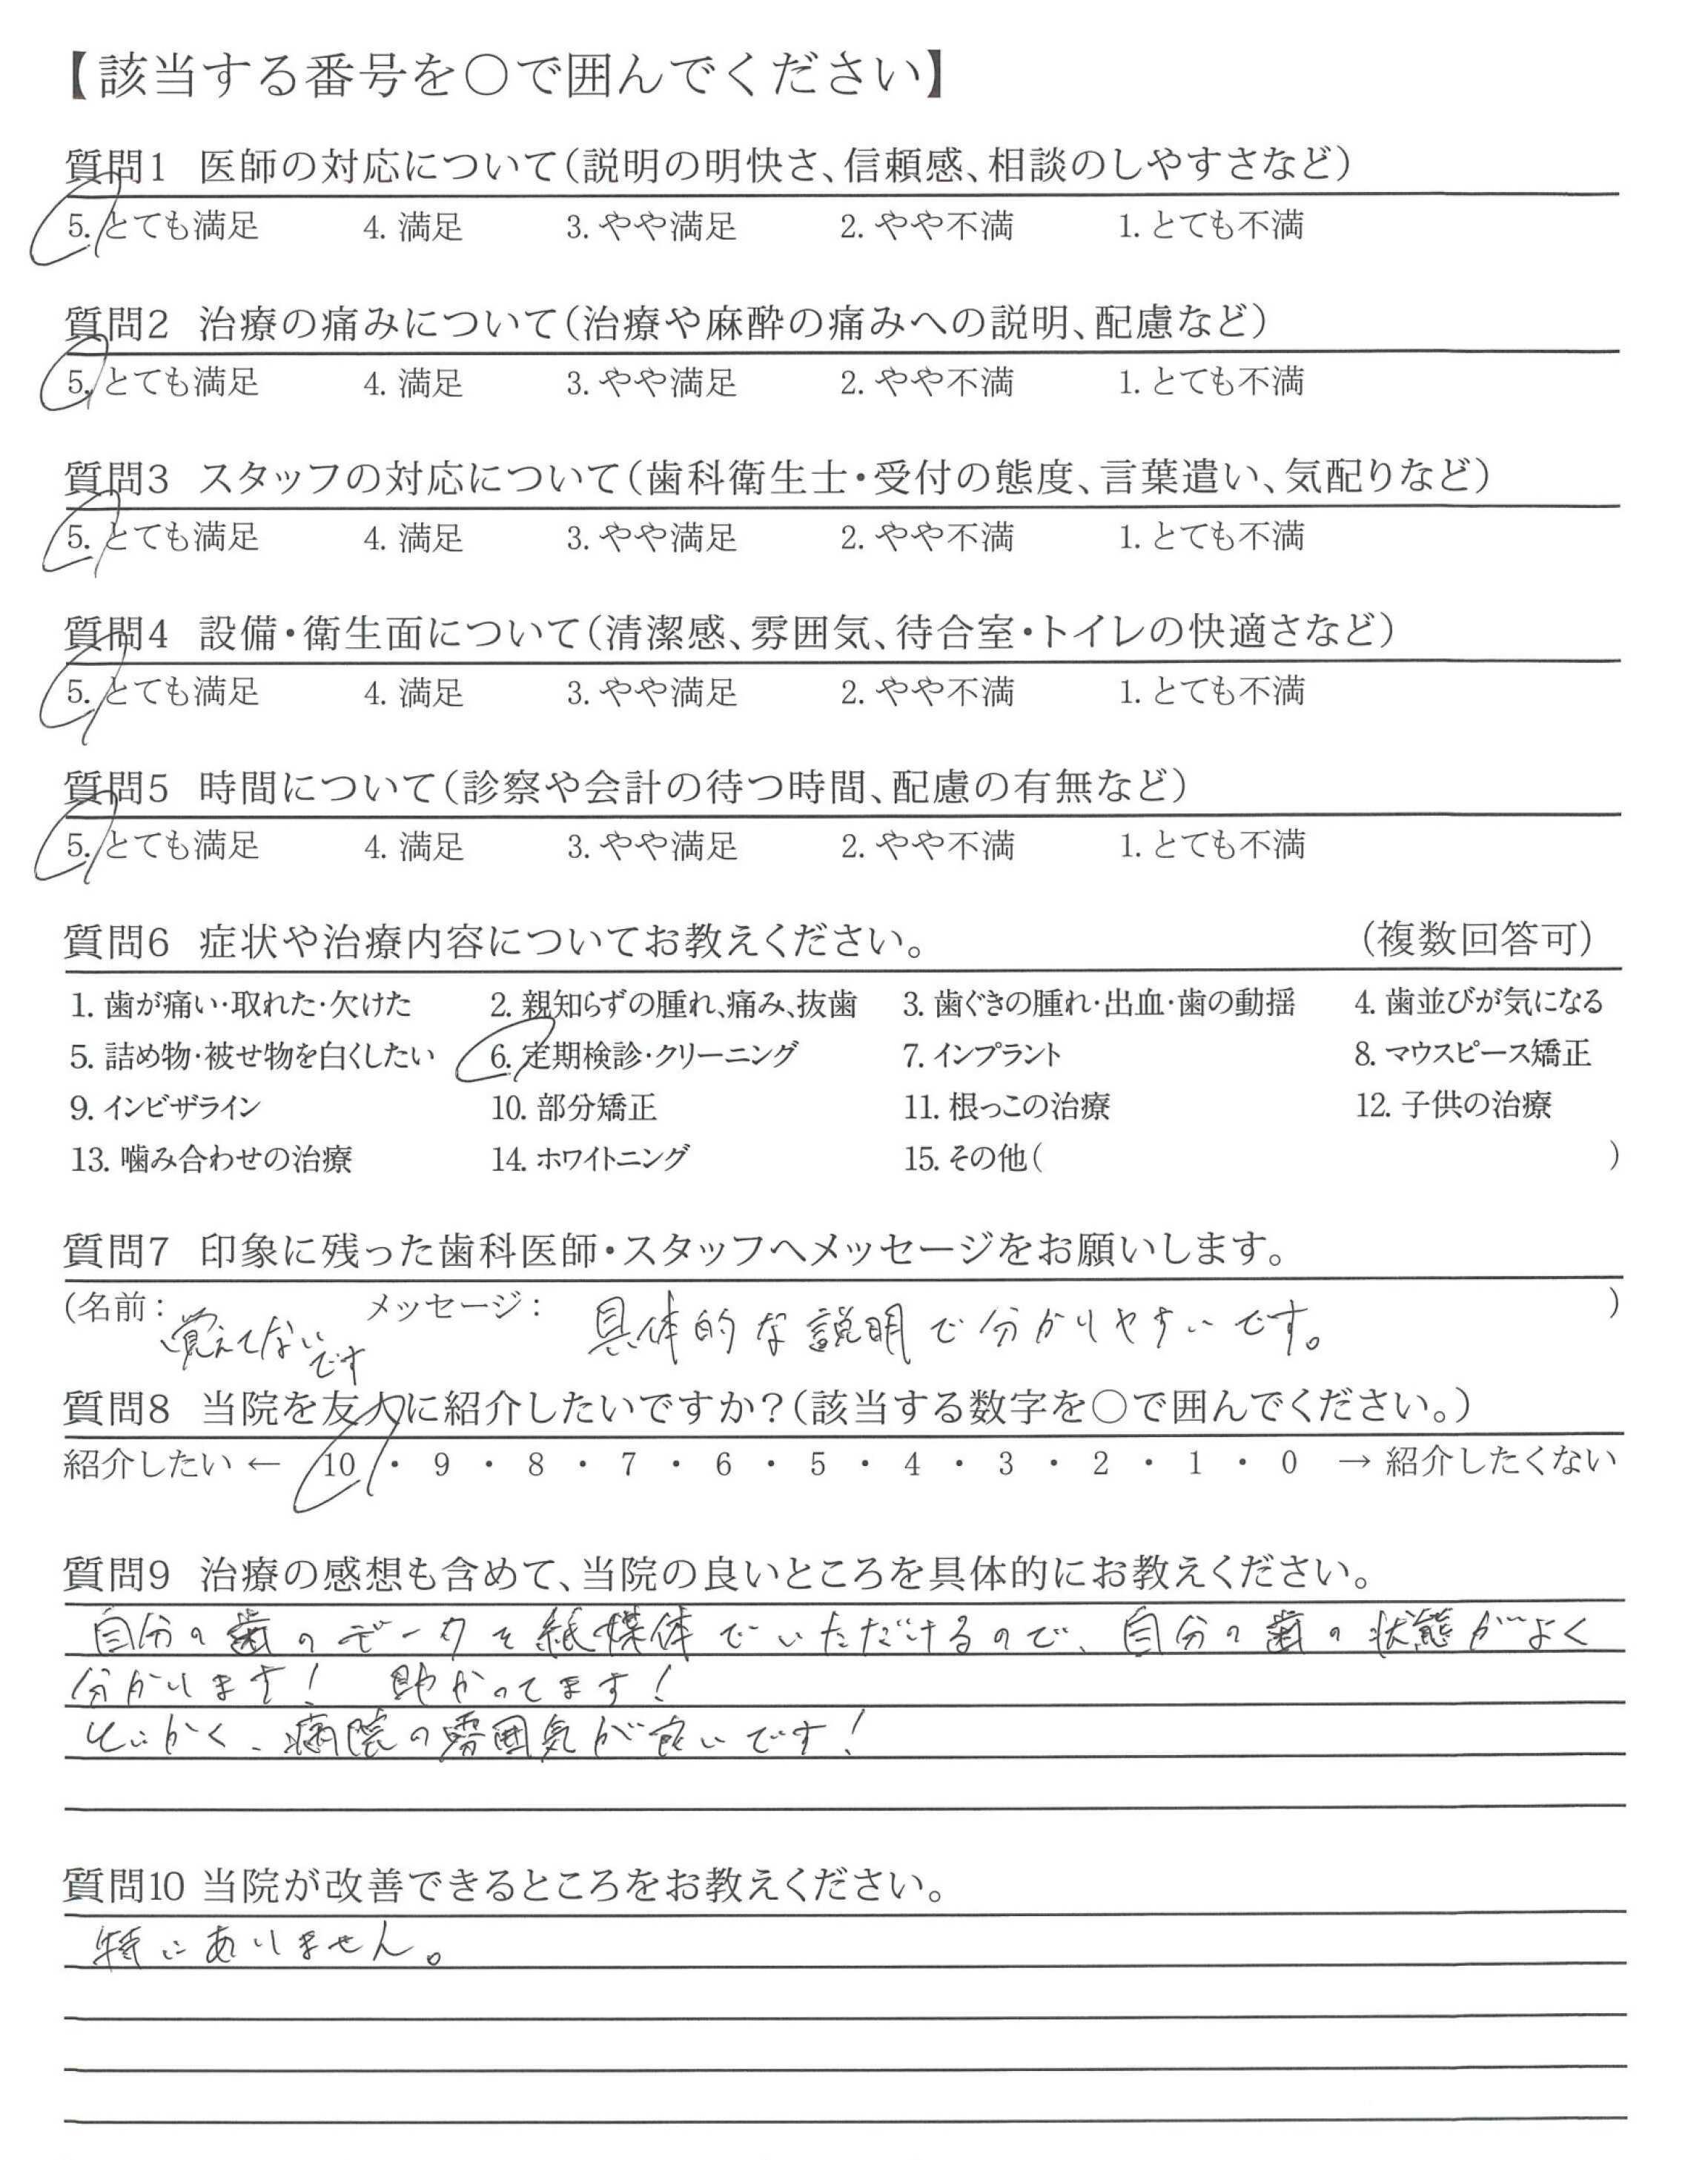 【該当する番号を○で囲んでください】
質問1 医師の対応について(説明の明快さ、信頼感、相談のしやすさなど)
5. とても満足 4. 満足 3. やや満足 2. やや不満 1. とても不満
質問2 治療の痛みについて(治療や麻酔の痛みへの説明、配慮など)
5. とても満足 4. 満足 3. やや満足 2. やや不満 1. とても不満
質問3 スタッフの対応について(歯科衛生士・受付の態度、言葉遣い、気配りなど)
5. とても満足 4. 満足 3. やや満足 2. やや不満 1. とても不満
質問4 設備・衛生面について(清潔感、雰囲気、待合室・トイレの快適さなど)
5. とても満足 4. 満足 3. やや満足 2. やや不満 1. とても不満
質問5 時間について(診察や会計の待つ時間、配慮の有無など)
5. とても満足 4. 満足 3. やや満足 2. やや不満 1. とても不満
質問6 症状や治療内容についてお教えください。 (複数回答可)
1. 歯が痛い・取れた・欠けた 2. 親知らずの腫れ、痛み、抜歯 3. 歯ぐきの腫れ・出血・歯の動揺 4. 歯並びが気になる
5. 詰め物・被せ物を白くしたい 6. 定期検診・クリーニング 7. インプラント 8. マウスピース矯正
9. インビザライン 10. 部分矯正 11. 根っこの治療 12. 子供の治療
13. 噛み合わせの治療 14. ホワイトニング 15. その他( )
質問7 印象に残った歯科医師・スタッフへメッセージをお願いします。
(名前: 覚えてないです メッセージ: 具体的な説明で分かりやすいです。 )
質問8 当院を友人に紹介したいですか?(該当する数字を○で囲んでください。)
紹介したい ← 10 ・ 9 ・ 8 ・ 7 ・ 6 ・ 5 ・ 4 ・ 3 ・ 2 ・ 1 ・ 0 → 紹介したくない
質問9 治療の感想も含めて、当院の良いところを具体的にお教えください。
自分の歯のデータを紙媒体でいただけるので、自分の歯の状態がよく
分かります! 助かってます!
とにかく、病院の雰囲気が良いです!
質問10 当院が改善できるところをお教えください。
特にありません。